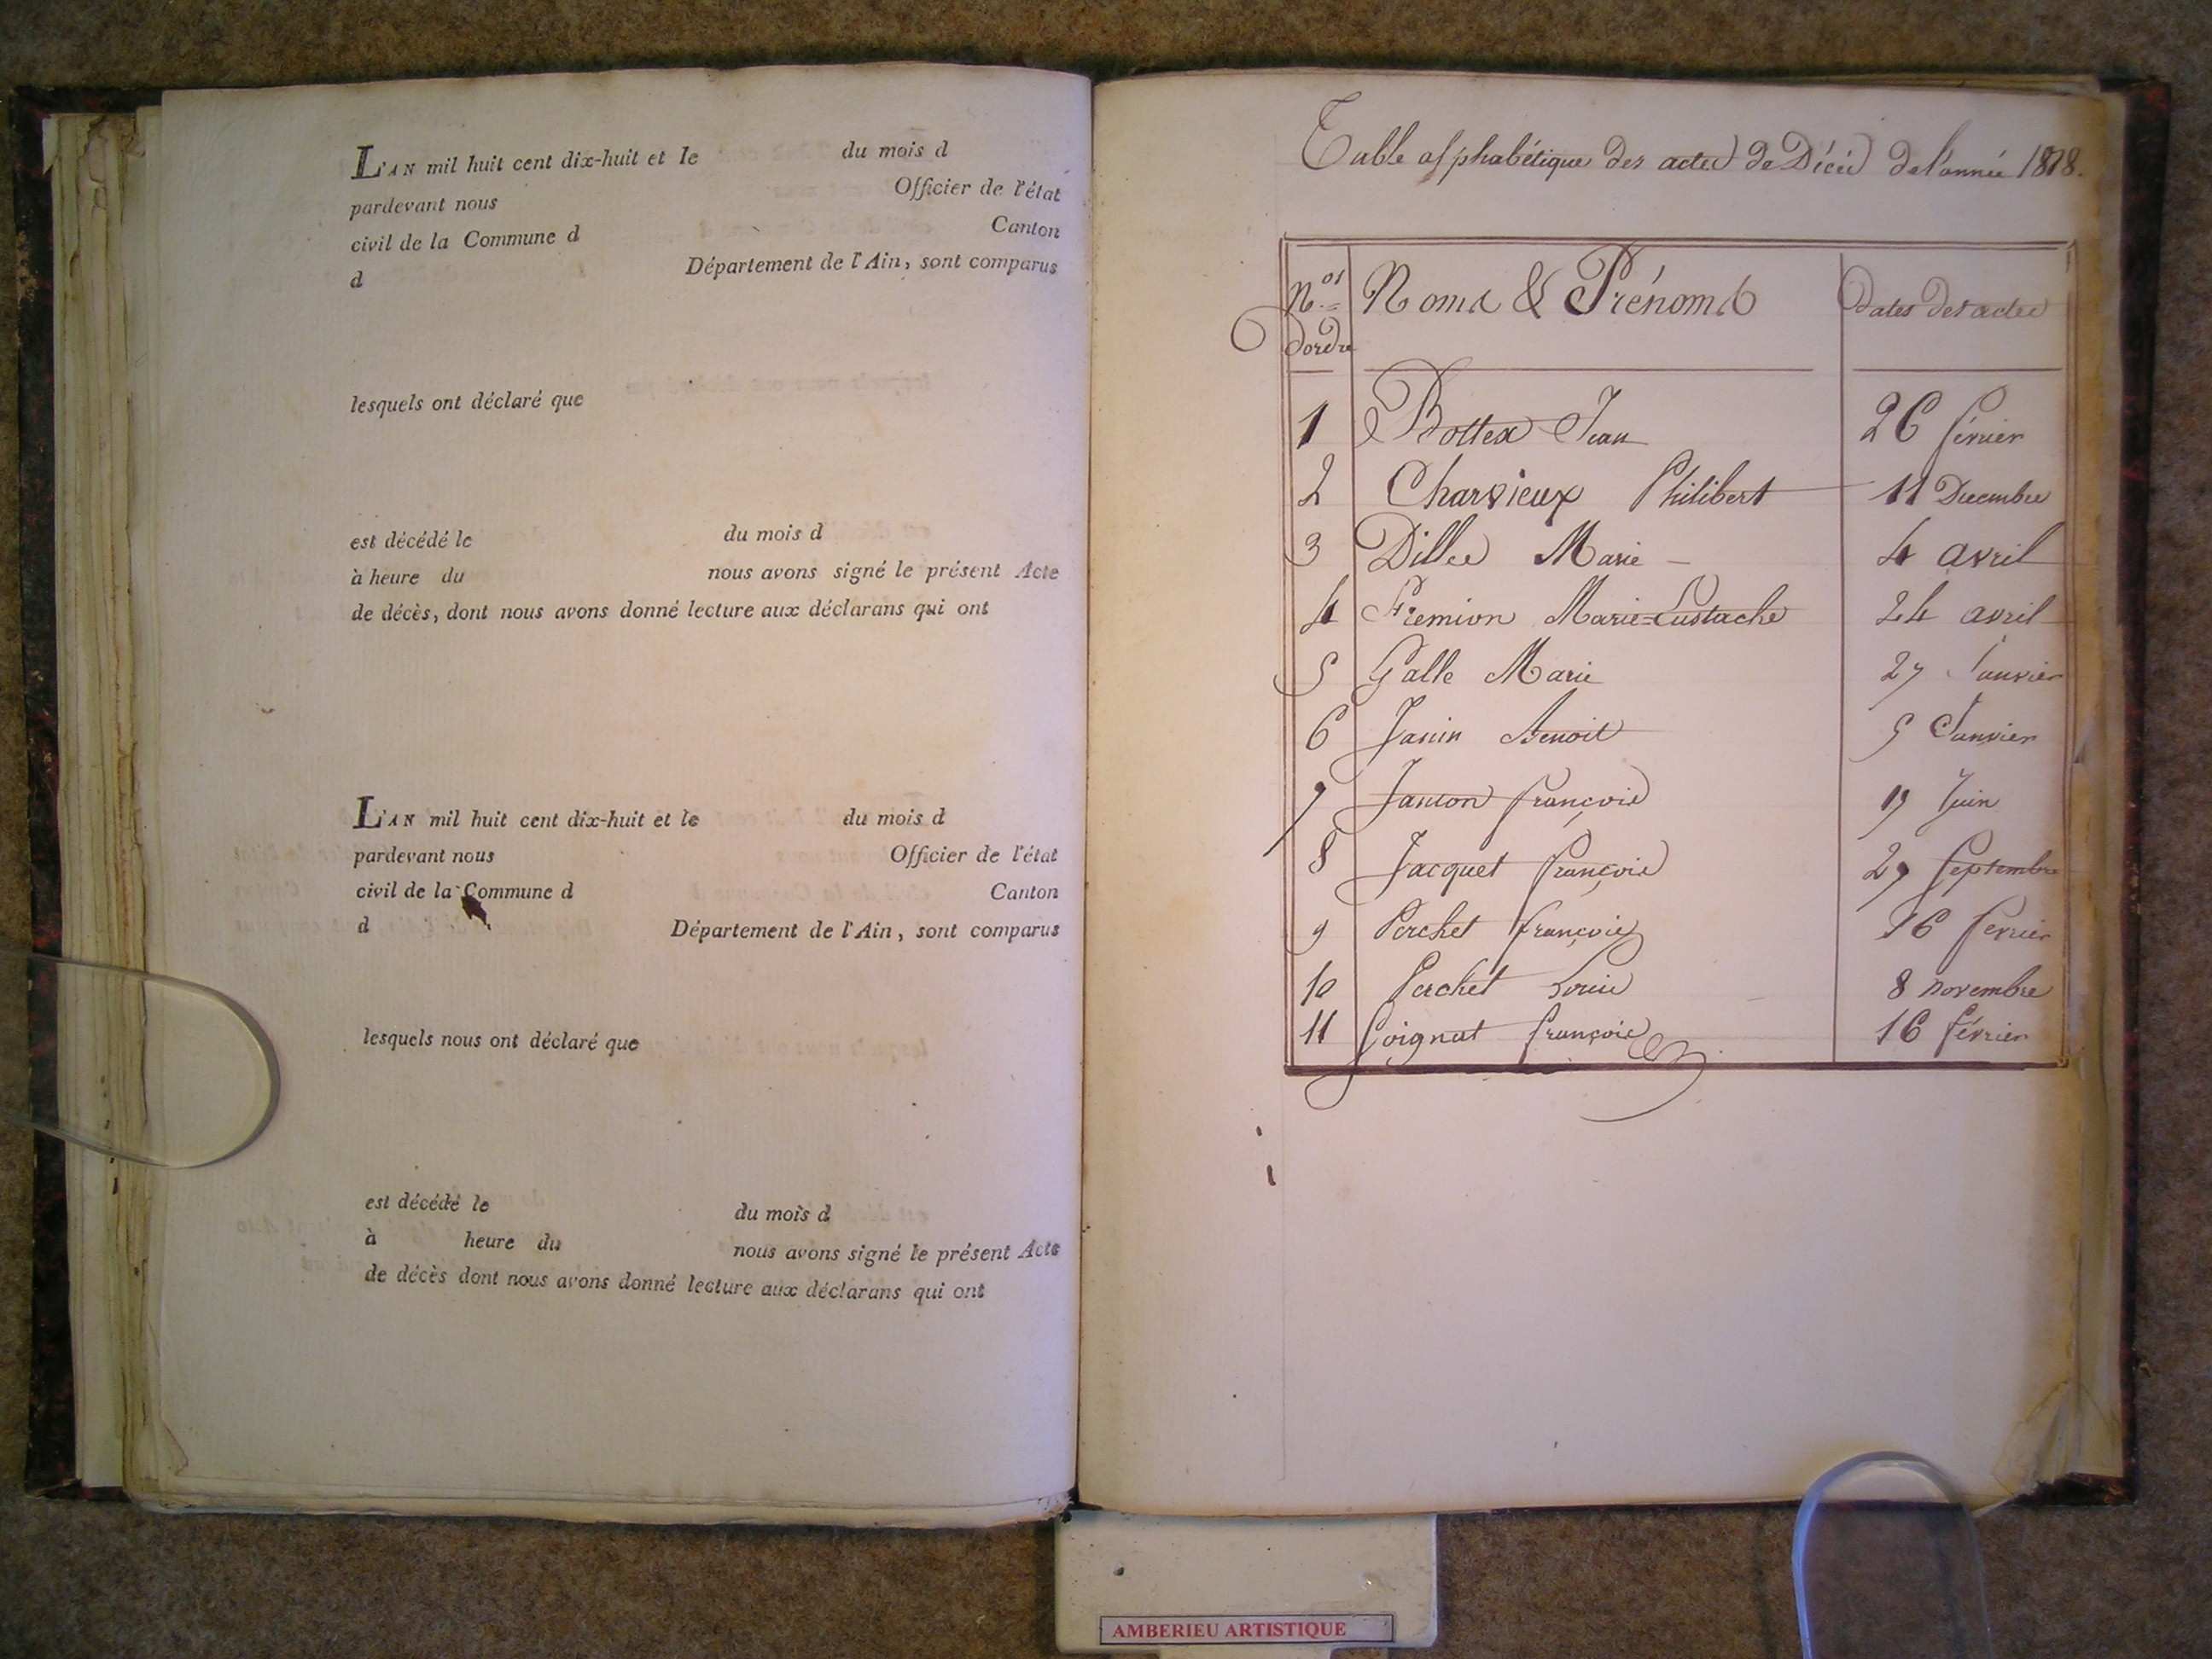 L'AN mil huit cent dix-huit et le du mois d
pardevant nous Officier de l'état
civil de la Commune d Canton
d Département de l'Ain, sont comparus
lesquels ont déclaré que
est décédé le du mois d
à heure du nous avons signé le présent Acte
de décès, dont nous avons donné lecture aux déclarans qui ont
L'AN mil huit cent dix-huit et le du mois d
pardevant nous Officier de l'état
civil de la Commune d Canton
d Département de l'Ain, sont comparus
lesquels nous ont déclaré que
est décédé le du mois d
à heure du nous avons signé le présent Acte
de décès dont nous avons donné lecture aux déclarans qui ont
Table alphabétique des actes de Décès de l'année 1818.
Nos d'ordre Noms & Prénoms Dates des actes
1 Bottex Jean 26 février
2 Charvieux Philibert 11 Decembre
3 Marie 4 avril
4 Fremion Marie=Eustache 24 avril
5 Galle Marie 27 Janvier
6 Janin Benoit 5 Janvier
7 Janton françois 19 Juin
8 Jacquet françois 29 Septembre
9 Perchet françois 16 fevrier
10 Perchet Louis 8 novembre
11 Poignat françois 16 février
AMBERIEU ARTISTIQUE